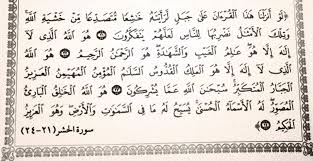 ﴿لَوْ أَنزَلْنَا هَٰذَا الْقُرْءَانَ عَلَىٰ جَبَلٍ لَّرَأَيْتَهُۥ خَٰشِعًا مُّتَصَدِّعًا مِّنْ خَشْيَةِ اللَّهِ
وَتِلْكَ الْأَمْثَٰلُ نَضْرِبُهَا لِلنَّاسِ لَعَلَّهُمْ يَتَفَكَّرُونَ ۝ هُوَ اللَّهُ الَّذِى لَا
إِلَٰهَ إِلَّا هُوَ عَٰلِمُ الْغَيْبِ وَالشَّهَٰدَةِ هُوَ الرَّحْمَٰنُ الرَّحِيمُ ۝ هُوَ اللَّهُ
الَّذِى لَا إِلَٰهَ إِلَّا هُوَ الْمَلِكُ الْقُدُّوسُ السَّلَٰمُ الْمُؤْمِنُ الْمُهَيْمِنُ الْعَزِيزُ
الْجَبَّارُ الْمُتَكَبِّرُ سُبْحَٰنَ اللَّهِ عَمَّا يُشْرِكُونَ ۝ هُوَ اللَّهُ الْخَٰلِقُ الْبَارِئُ
الْمُصَوِّرُ لَهُ الْأَسْمَاءُ الْحُسْنَىٰ يُسَبِّحُ لَهُۥ مَا فِى السَّمَٰوَٰتِ وَالْأَرْضِ وَهُوَ الْعَزِيزُ
الْحَكِيمُ ۝﴾
سورة الحشر (٢١-٢٤)